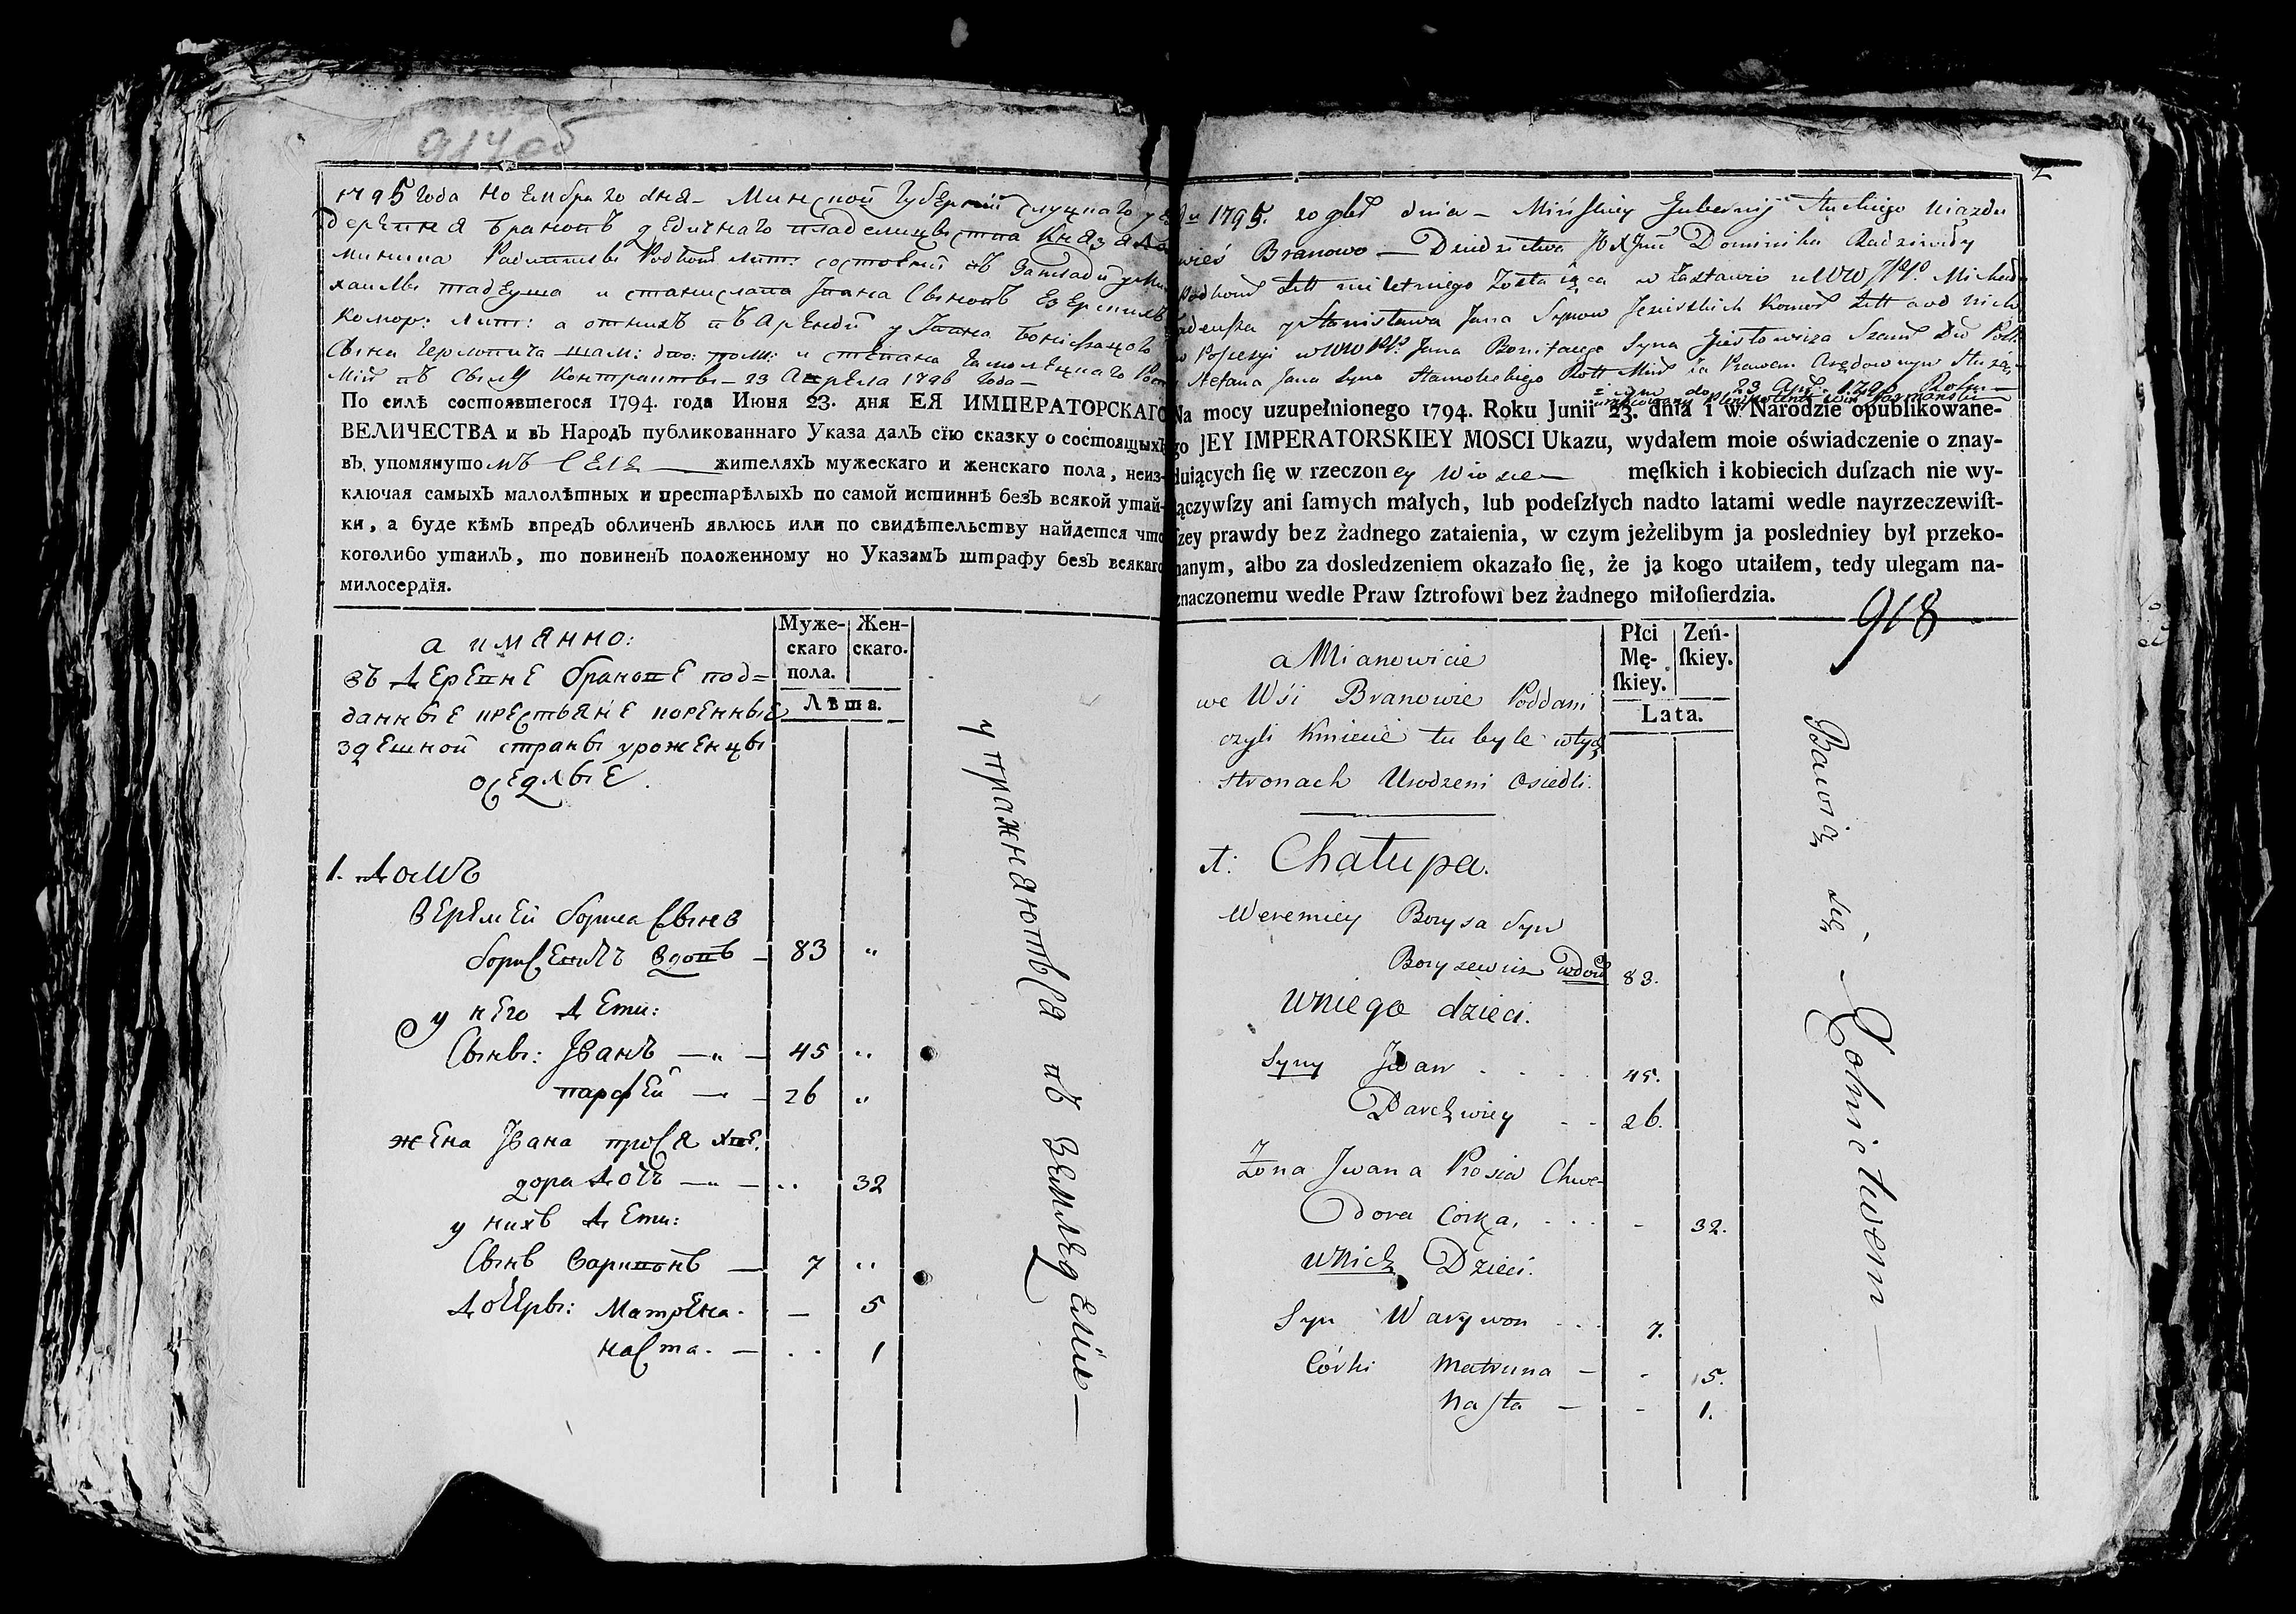 1795 года ноембра 20 дня – Минской губернии слуцкаго
деревня брановъ дедичнаго владелицства Князя
миника Радзивилы Подком: лит: состоящей въ Закладе
хаилы тадеуша и станислава Ивана Сыновъ Езерских
Комор: лит: а отнихъ въ Аренди у Ивана
Сына Шам: дво: полс: и степана
въ силу Контракты – 23 Апреля 1796 года –
По силѣ состоявшегося 1794. года Июня 23. дня ЕЯ ИМПЕРАТОРСКАГО
ВЕЛИЧЕСТВА и въ Народъ публикованнаго Указа далъ сїю сказку о состоящыхъ
въ упомянутомъ Селе жителяхъ мужескаго и женскаго пола, неиз-
ключая самыхъ малолѣтныхъ и престарѣлыхъ по самой истиннѣ безъ всякой утай-
ки, а буде кѣмъ впредъ обличенъ явлюсь или по свидѣтельству найдется что
коголибо утаилъ, то повиненъ положенному но Указамъ штрафу безъ всякаго
милосердїя.
а имянно:
въ Деревне бранове под=
данные крестьяне коренные
здешной страны уроженцы
оседлые.
Муже-
скаго
пола.
Жен-
скаго.
Лѣта.
1. Домъ
Веремей бориса Сынъ
борисевичъ вдовъ – 83 "
у него Дети:
Сыны: Иванъ – " – 45 "
парфей – – 26 "
жена Ивана прося хве:
дора Дочь – " – " 32
у нихъ Дети:
Сынъ Варивонъ – 7 "
Дочеры: Матрена. – 5
наста. – . . 1
упражняютьса въ Земледелии –
2
1795. 20 9bra dnia – Mińskiey Gubernij Słuckiego Uiazdu
wieś Branowo – Dziedzictwa JOXJmć Dominika Radziwiły
Podkom Litt nieletniego Zosta iąca w Zastawie u WW JPP. Michała
Tadeusza y Stanisława Jana Synow Jezierskich Komor Litt a od nich
w Posesyi u WW JPP. Jana Bonifacego Syna Szam Dw Pols
Stefana Jana Syna Rott Min za Prawem Arędownym
do 23 Apr. 1796 Roku –
Na mocy uzupełnionego 1794. Roku Junii 23. dnia i w Narodzie opublikowane-
go JEY IMPERATORSKIEY MOSCI Ukazu, wydałem moie oświadczenie o znay-
duiących ſię w rzeczoney Wiosce męſkich i kobiecich duſzach nie wy-
łączywſzy ani ſamych małych, lub podeſzłych nadto latami wedle nayrzeczewiſt-
ſzey prawdy bez żadnego zataienia, w czym jeżelibym ja posledniey był przeko-
nanym, albo za dosledzeniem okazało ſię, że ja kogo utaiłem, tedy ulegam na-
znaczonemu wedle Praw ſztrofowi bez żadnego miłoſierdzia.
918
a Mianowicie
we Wśi Branowie Poddani
czyli Kmiecie tu byle w tych
stronach Urodzeni Osiedli.
Płci
Mę-
ſkiey.
Zeń-
ſkiey.
Lata.
1: Chałupa.
Weremiey Borysa Syn
Borysewicz wdow 83.
U niego dzieci.
Syny Jwan . . . 45.
Parchwiey . . 26.
Żona Jwana Prosia Chwe-
dora Corka, . . . - 32.
U nich Dzieci.
Syn Warywon . . . 7.
Córki Matruna – - 5.
Nasta – - 1.
Bawią się – Rolnictwem –